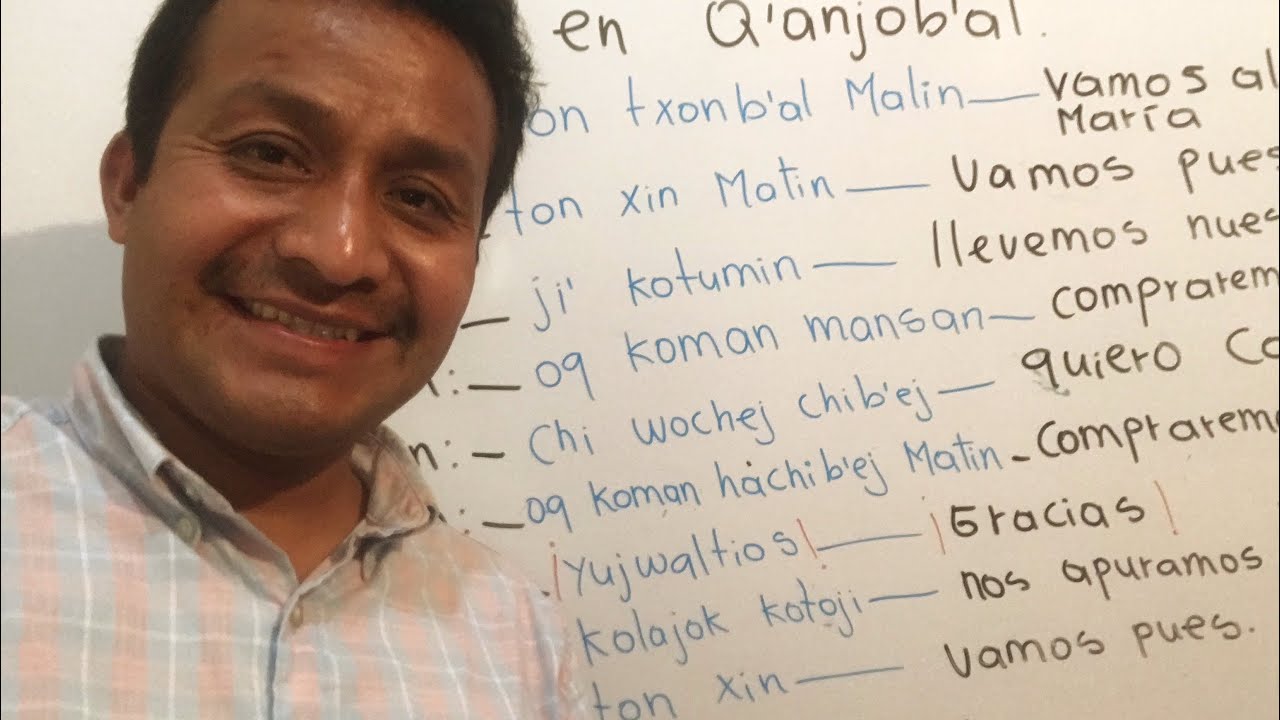 en Q'anjob'al.
on txonb'al Malin — Vamos al
María
ton xin Matin — Vamos pues
— ji' kotumin — llevemos nues
: — oq koman mansan — compraremo
n: — Chi wochej chib'ej — quiero Co
: — oq koman háchib'ej Matin - Compraremo
¡Yujwaltios! — ¡Gracias!
kolajok kotoji — nos apuramos
ton xin — vamos pues.